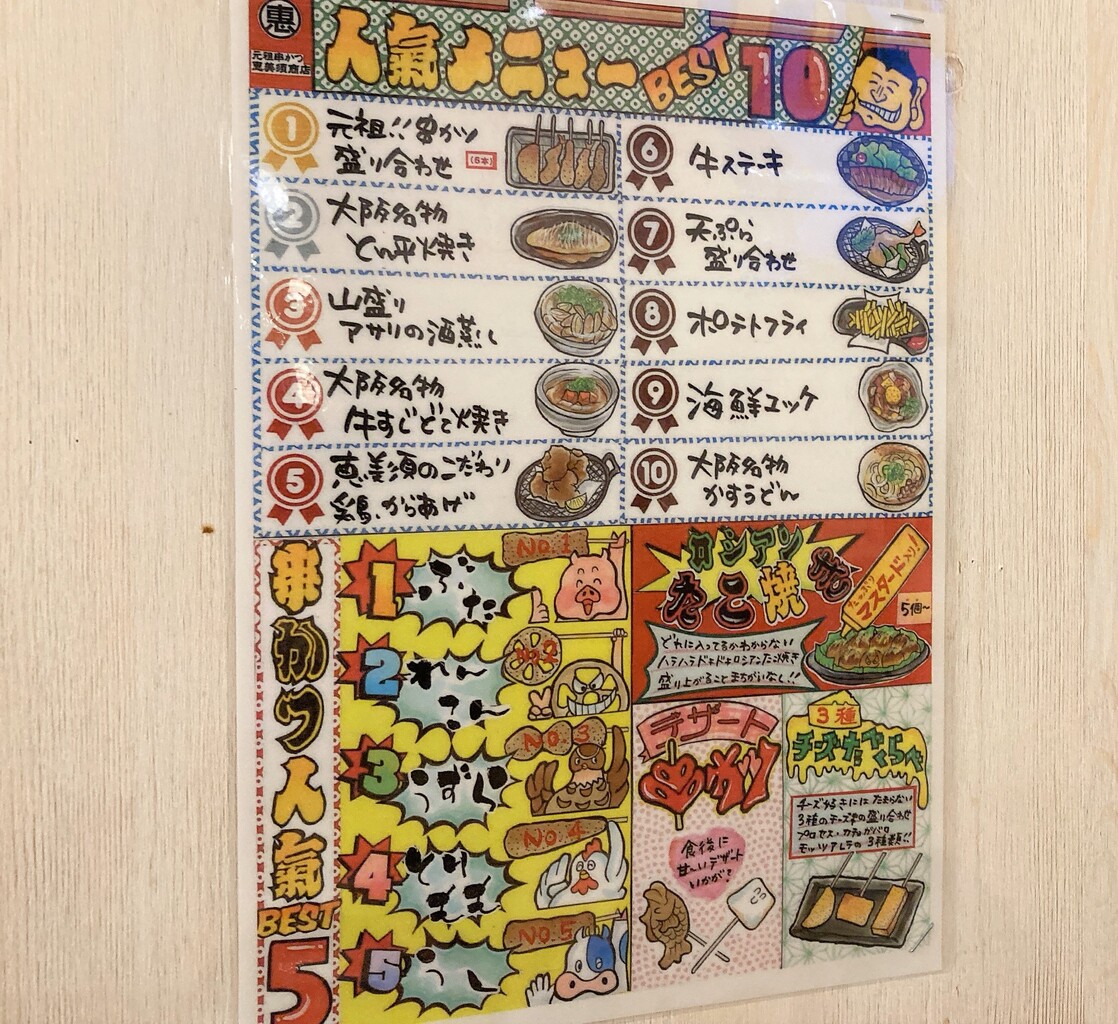 恵
元祖串かつ
恵美須商店
人氣メニューBEST10
1
元祖!!串かつ
盛り合わせ
(6本)
2
大阪名物
とん平焼き
3
山盛り
アサリの酒蒸し
4
大阪名物
牛すじどて焼き
5
恵美須のこだわり
鶏からあげ
6
牛ステーキ
7
天ぷら
盛り合わせ
8
ポテトフライ
9
海鮮ユッケ
10
大阪名物
かすうどん
串かつ人氣
BEST
5
1
ぶた
No.1
2
れんこん
No.2
3
うずら
No.3
4
とりもも
No.4
5
うし
No.5
ロシアン
たこ焼き
たっぷり
マスタード入り!
5個〜
どれに入ってるかわからない
ハラハラドキドキロシアンたこ焼き
盛り上がることまちがいなし!!
デザート
串かつ
食後に
甘〜いデザート
いかが?
3種
チーズ食べくらべ
チーズ好きにはたまらない
3種のチーズ串の盛り合わせ
プロセス・カチョカバロ
モッツァレラの3種類!!